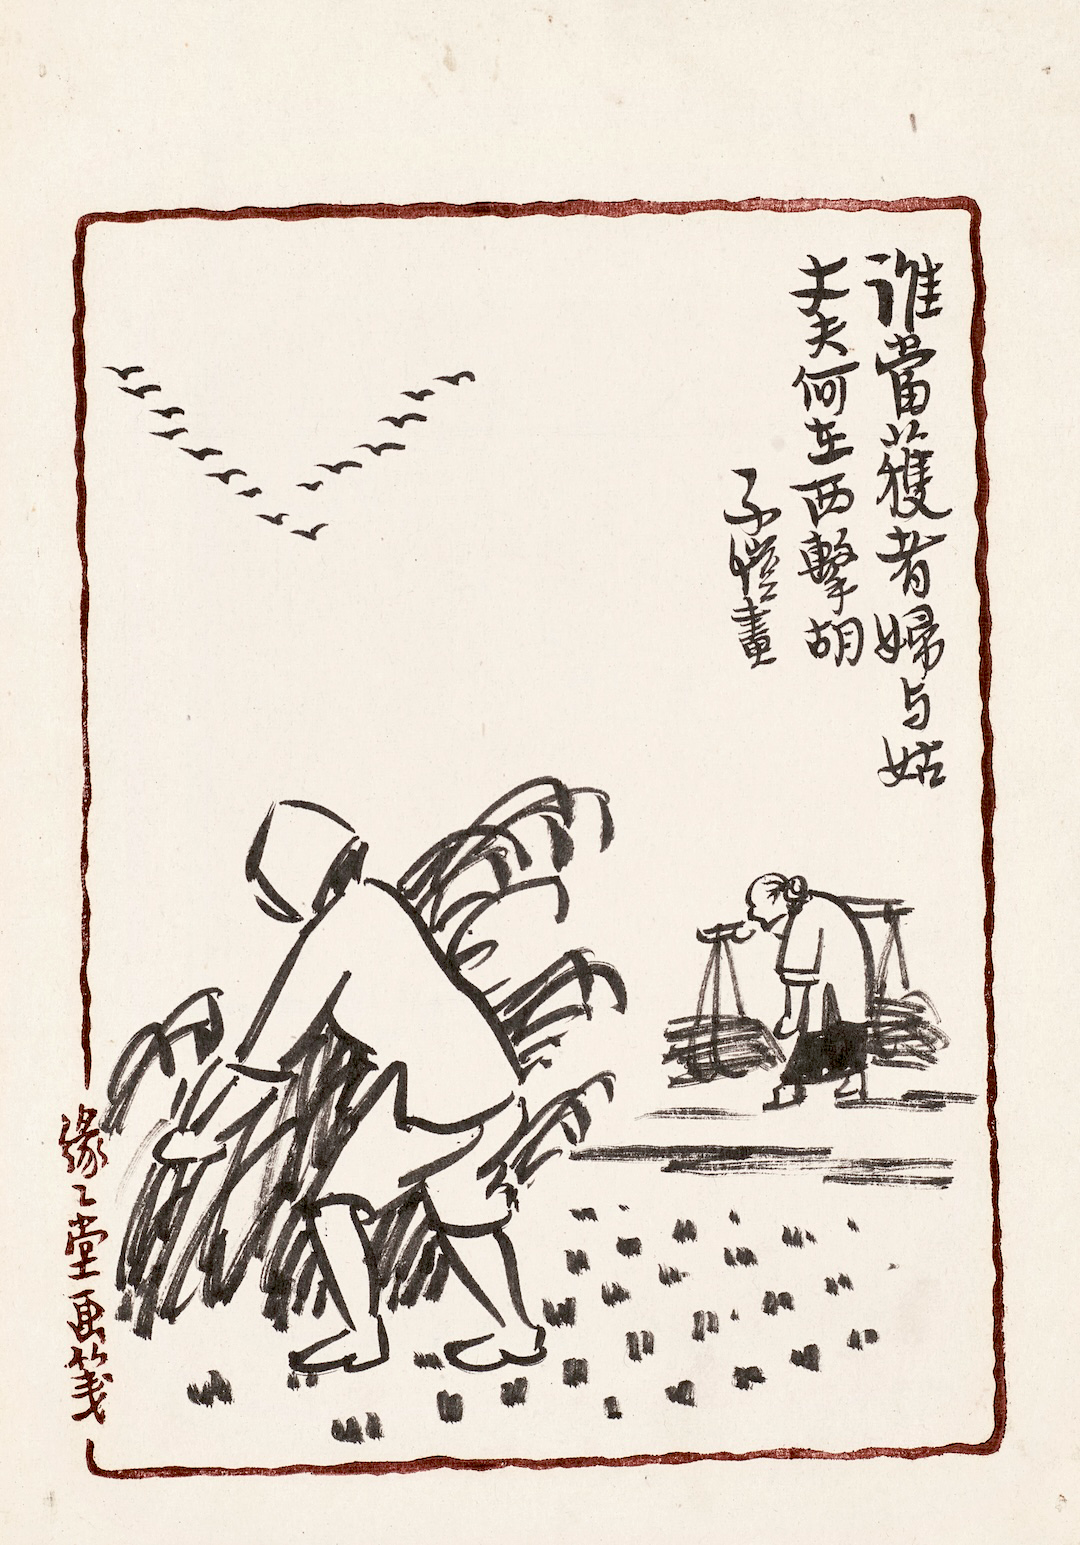 谁當穫者婦与姑
丈夫何在西擊胡
子愷畫
緣〻堂画箋